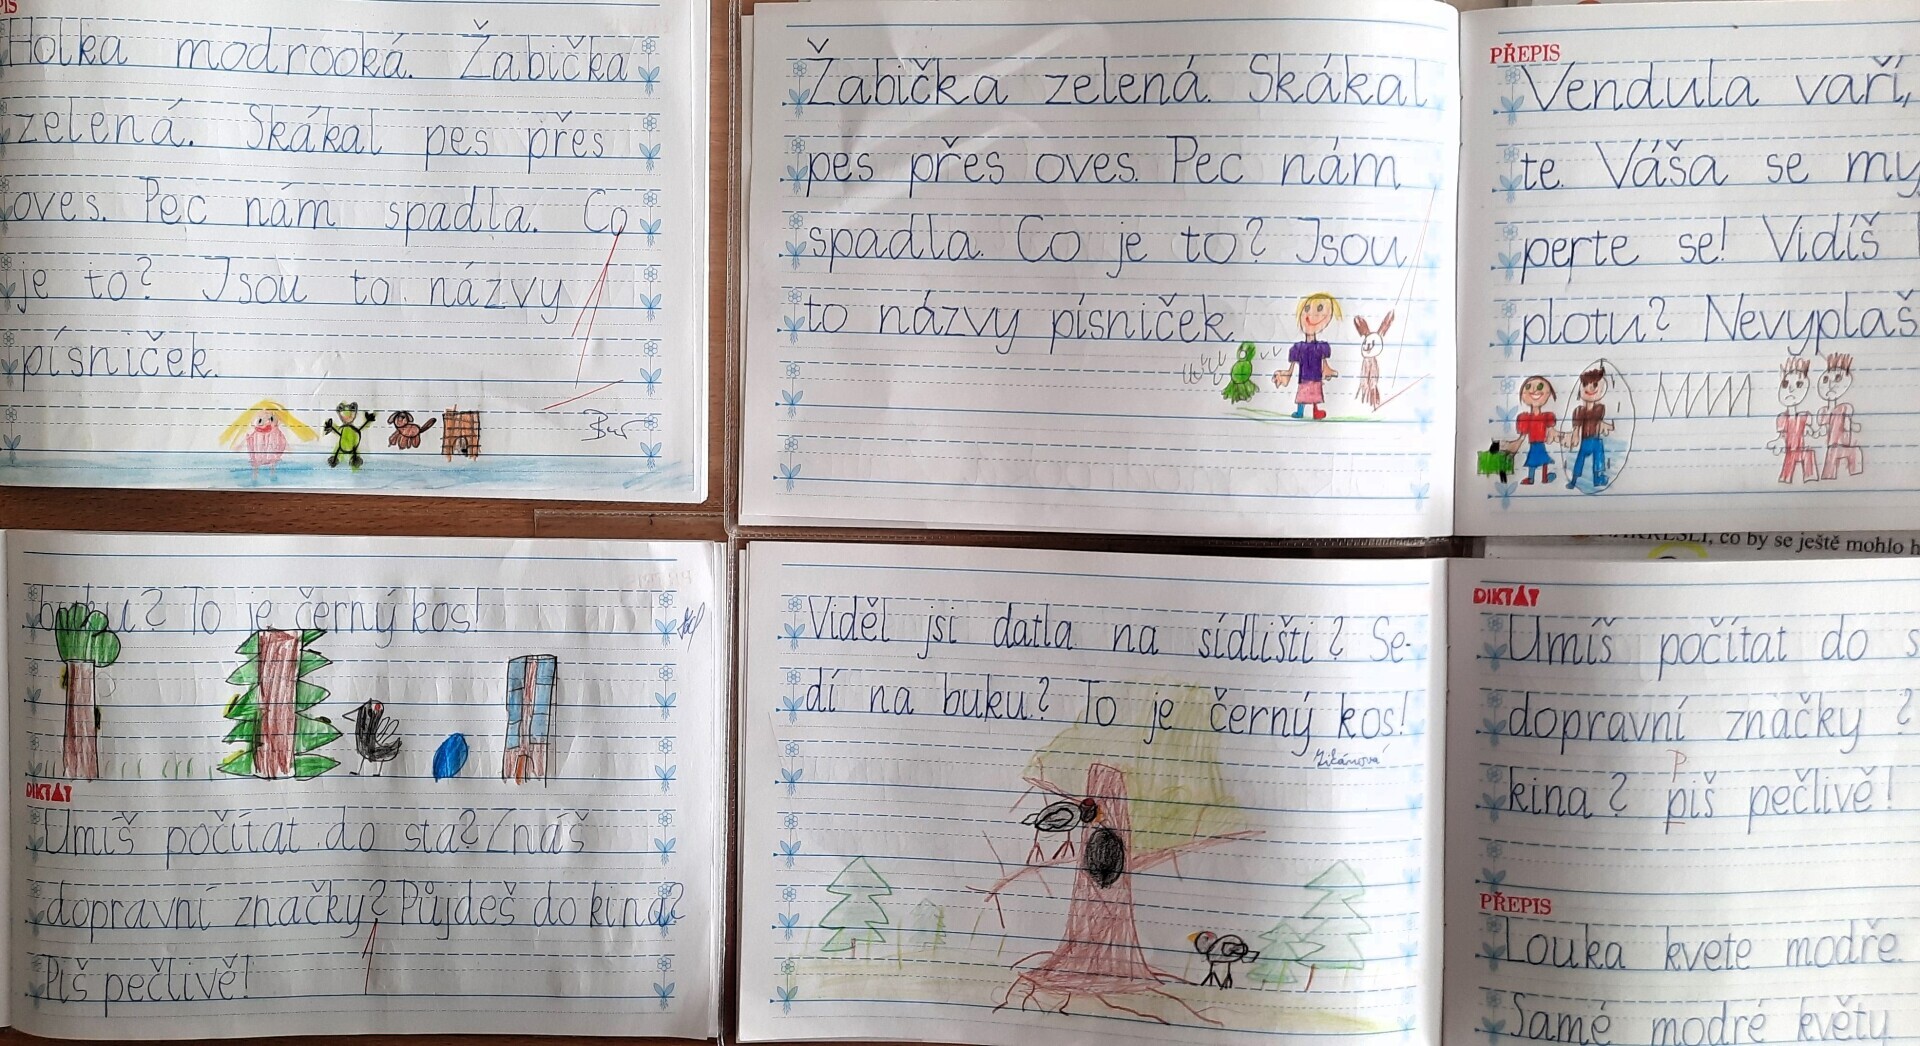 Holka modrooká. Žabička
zelená. Skákal pes přes
oves. Pec nám spadla. Co
je to? Jsou to názvy
písniček.
Žabička zelená. Skákal
pes přes oves. Pec nám
spadla. Co je to? Jsou
to názvy písniček.
PŘEPIS
Vendula vaří,
te. Váša se my
perte se! Vidíš
plotu? Nevyplaš
buku? To je černý kos!
DIKTÁT
Umíš počítat do sta? Znáš
dopravní značky? Půjdeš do kina?
Piš pečlivě!
Viděl jsi datla na sídlišti? Se-
dí na buku? To je černý kos!
co by se ještě mohlo h
DIKTÁT
Umíš počítat do s
dopravní značky?
P
kina? piš pečlivě!
PŘEPIS
Louka kvete modře.
Samé modré květy